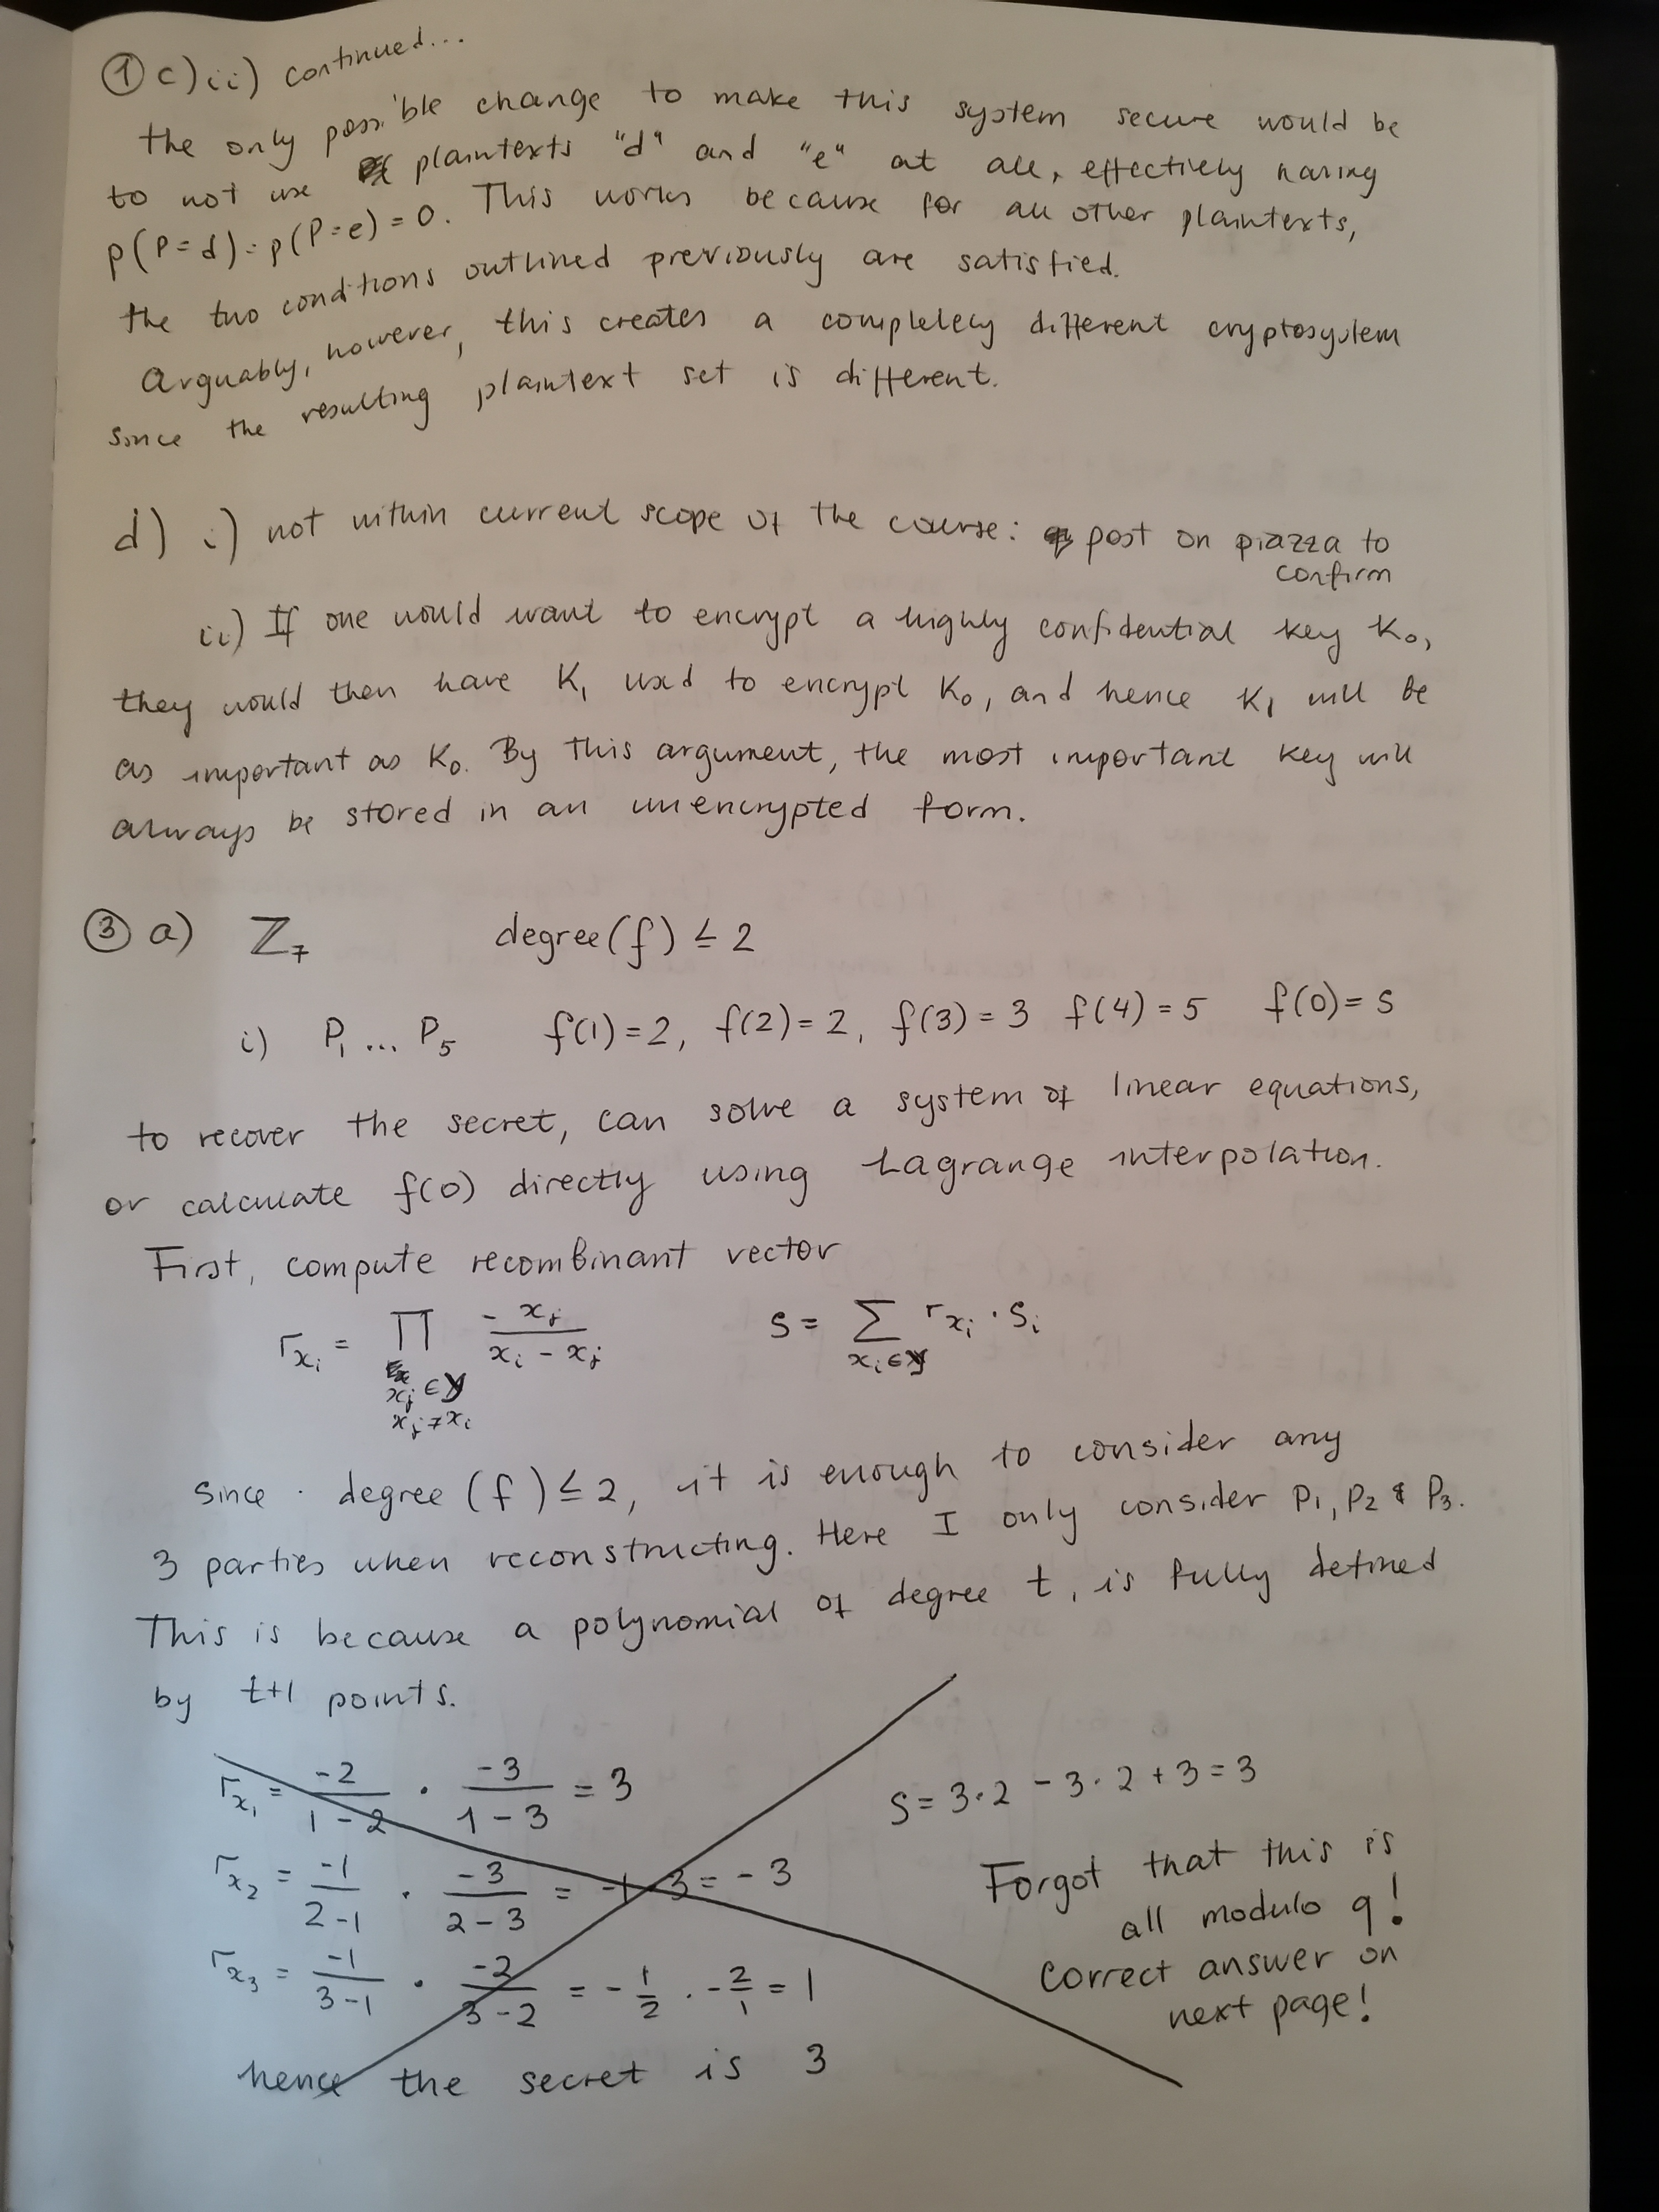 ① c) ii) continued...
the only possible change to make this system secure would be
to not use plaintexts "d" and "e" at all, effectively having
p(P=d) = p(P=e) = 0. This works because for all other plaintexts,
the two conditions outlined previously are satisfied.
Arguably, however, this creates a completely different cryptosystem
since the resulting plaintext set is different.
d) i) not within current scope of the course: post on piazza to
confirm
ii) If one would want to encrypt a highly confidential key K₀,
they would then have K₁ used to encrypt K₀, and hence K₁ will be
as important as K₀. By this argument, the most important key will
always be stored in an unencrypted form.
③ a) ℤ₇ degree(f) ≤ 2
i) P₁ ... P₅ f(1) = 2, f(2) = 2, f(3) = 3 f(4) = 5 f(0) = S
to recover the secret, can solve a system of linear equations,
or calculate f(0) directly using Lagrange interpolation.
First, compute recombinant vector
r_{x_i} = ∏_{x_j ∈ Y, x_j ≠ x_i} -x_j / (x_i - x_j) S = ∑_{x_i ∈ Y} r_{x_i} · S_i
since degree (f) ≤ 2, it is enough to consider any
3 parties when reconstructing. Here I only consider P₁, P₂ & P₃.
This is because a polynomial of degree t, is fully defined
by t+1 points.
r_{x_1} = -2/(1-2) · -3/(1-3) = 3 S = 3·2 - 3·2 + 3 = 3
r_{x_2} = -1/(2-1) · -3/(2-3) = -1 · 3 = -3
r_{x_3} = -1/(3-1) · -2/(3-2) = -1/2 · -2/1 = 1
hence the secret is 3
Forgot that this is
all modulo q!
Correct answer on
next page!